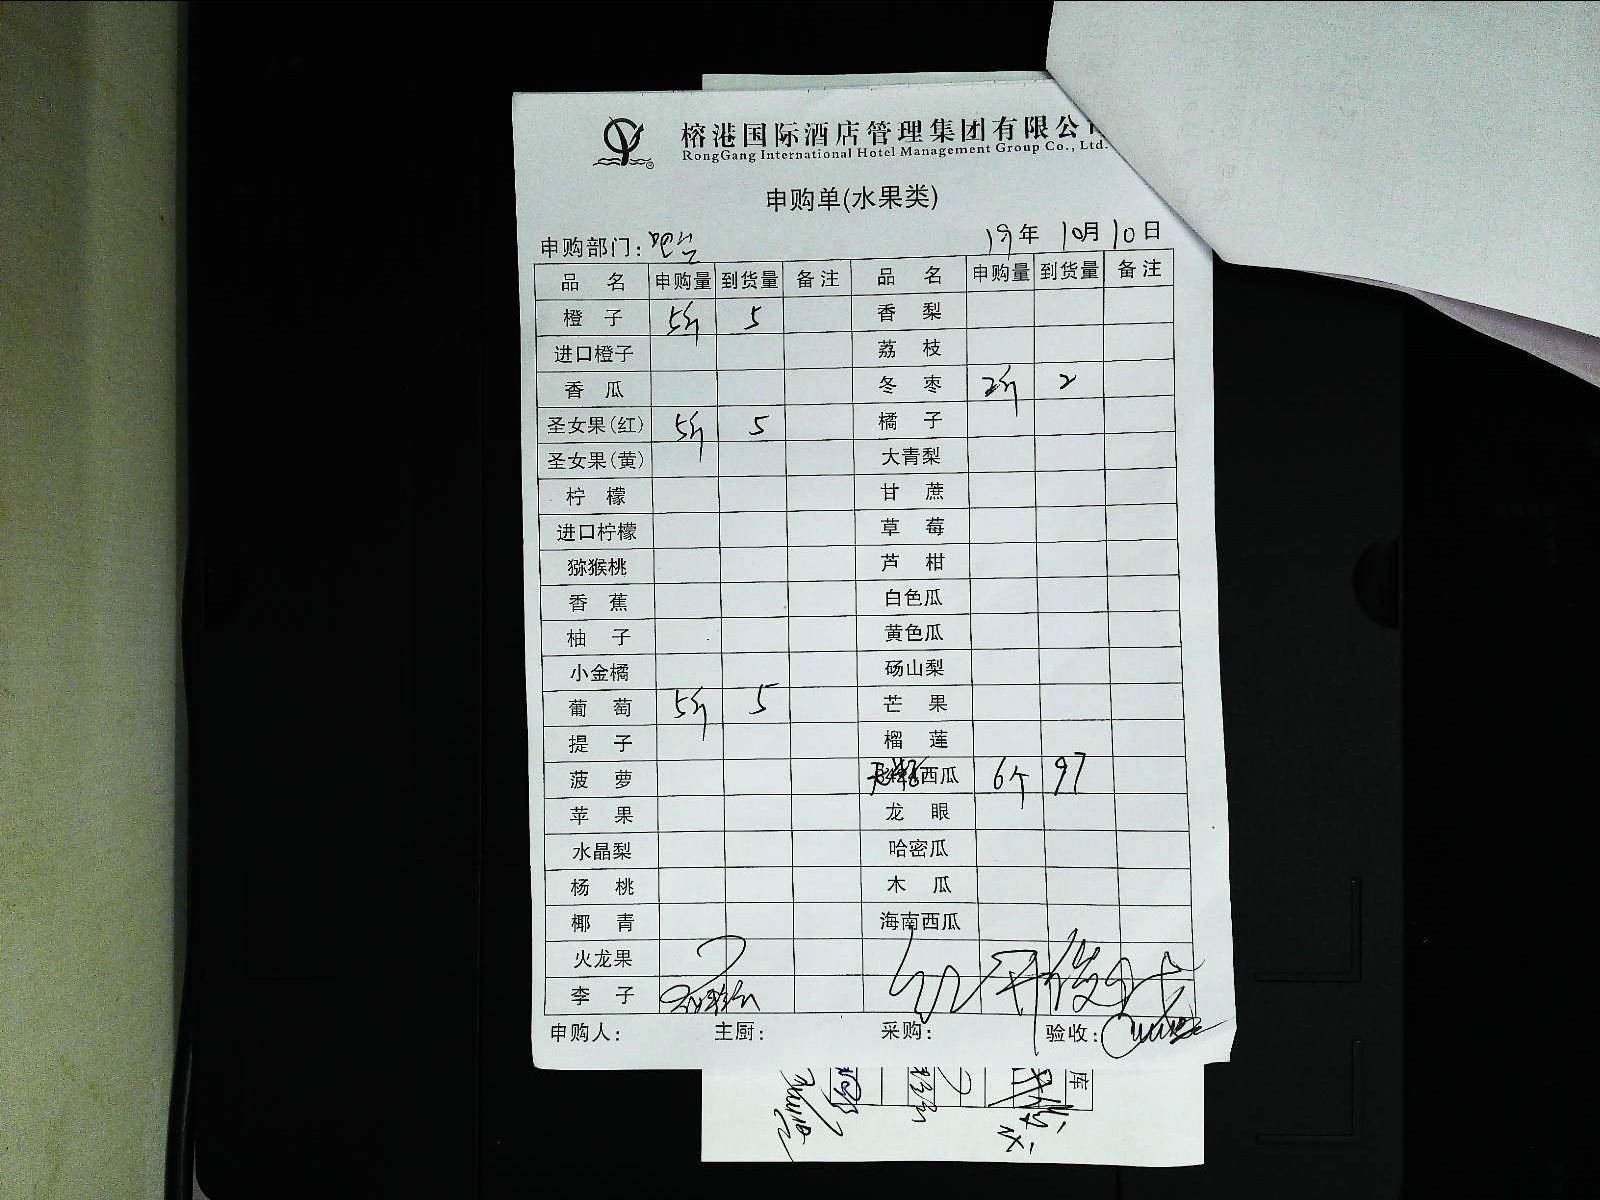 榕港国际酒店管理集团有限公
RongGang International Hotel Management Group Co., Ltd.
申购单(水果类)
申购部门: 19年 10月 10日
品 名 申购量 到货量 备注 品 名 申购量 到货量 备注
橙 子 5斤 5 香 梨
进口橙子 荔 枝
香 瓜 冬 枣 2斤 2
圣女果(红) 5斤 5 橘 子
圣女果(黄) 大青梨
柠 檬 甘 蔗
进口柠檬 草 莓
猕猴桃 芦 柑
香 蕉 白色瓜
柚 子 黄色瓜
小金橘 砀山梨
葡 萄 5斤 5 芒 果
提 子 榴 莲
菠 萝 西瓜 6个 97
苹 果 龙 眼
水晶梨 哈密瓜
杨 桃 木 瓜
椰 青 海南西瓜
火龙果
李 子
申购人: 主厨: 采购: 验收:
库